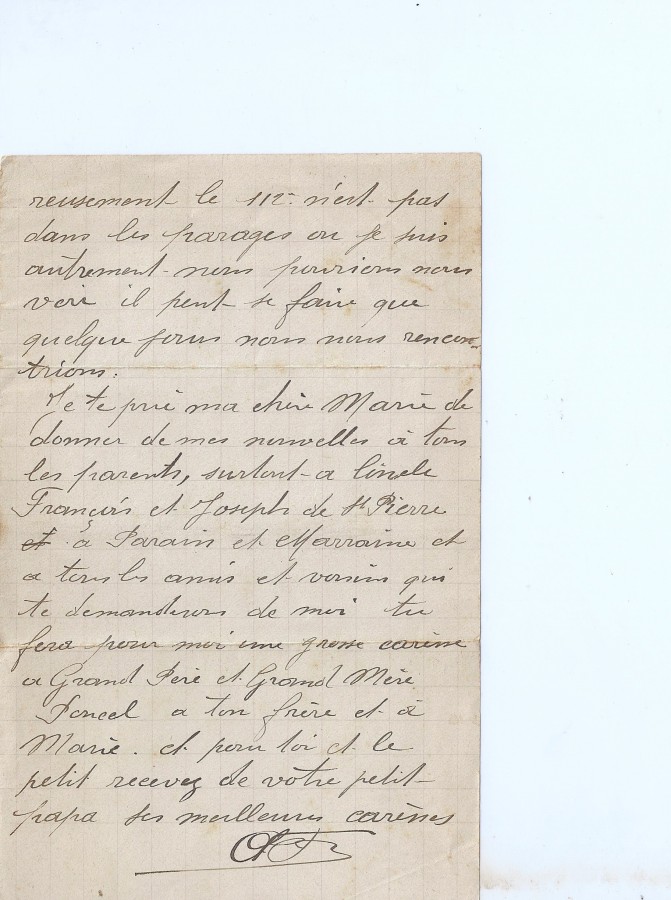 reusement le 112e n'est pas
dans les parages ou je suis
autrement nous pourions nous
voir il peut se faire que
quelque jours nous nous rencon-
trions.
Je te prie ma chère Marie de
donner de mes nouvelles à tous
les parents, surtout a l'oncle
François et Joseph de St Pierre
et à Parain et Marraine et
a tous les amis et voisins qui
te demanderons de moi tu
fera pour moi une grosse caresse
a Grand Père et Grand Mère
Poncel a ton frère et à
Marie. et pour toi et le
petit recevez de vôtre petit
papa ses meilleures carèsses